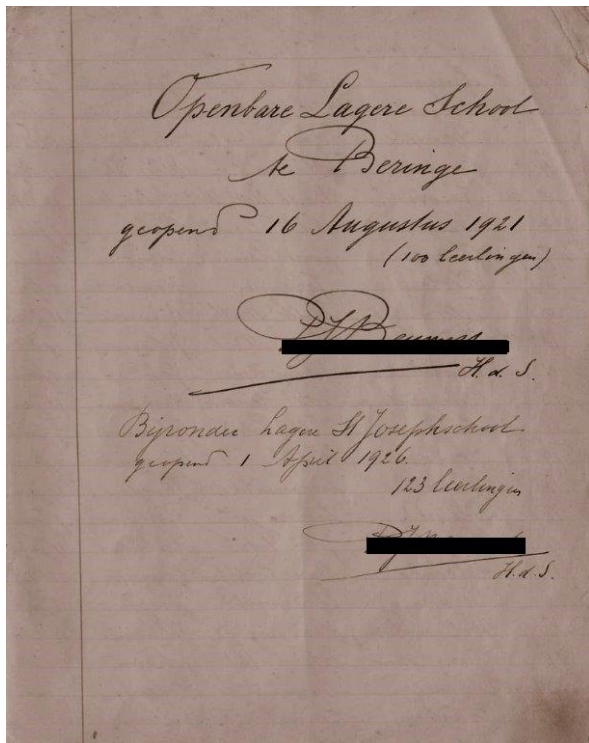 Openbare Lagere School
te Beringe
geopend 16 Augustus 1921
(100 leerlingen)
H. d. S.
Bijzondere Lagere St Josephschool
geopend 1 April 1926.
123 leerlingen
H. d. S.